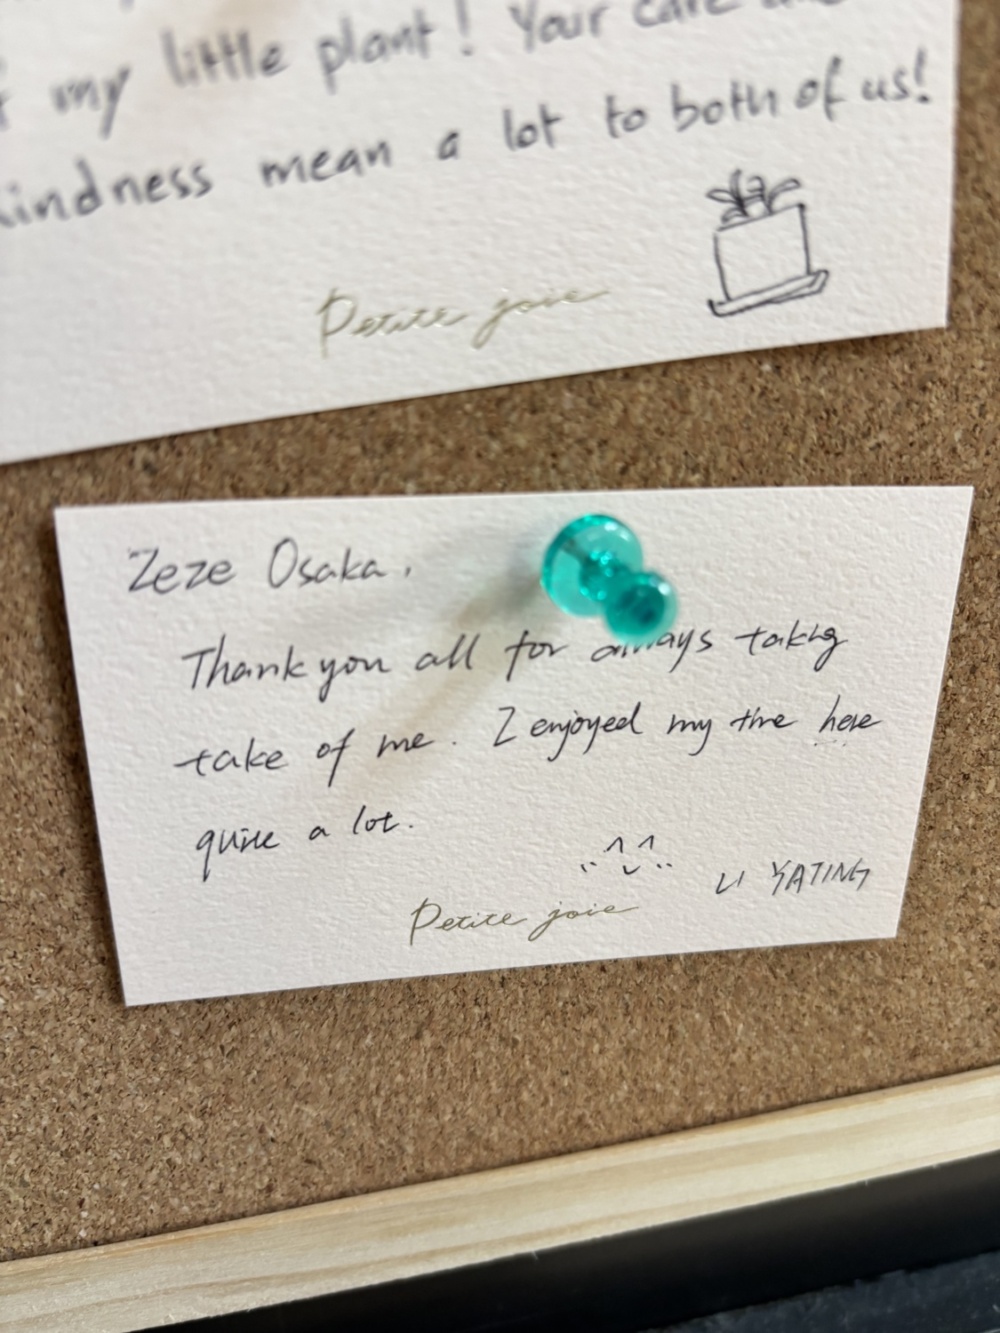 my little plant! Your care
kindness mean a lot to both of us!
Petite joie
Zeze Osaka,
Thank you all for always taking
take of me. I enjoyed my time here
quite a lot.
LI YATING
Petite joie